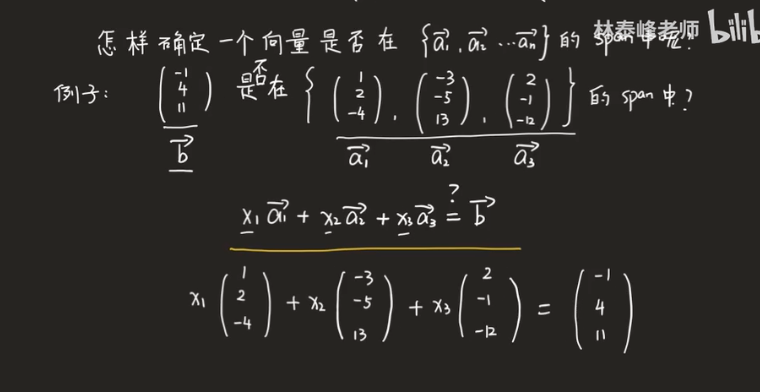 怎样确定一个向量是否在 {a₁⃗, a₂⃗ ⋯ aₙ⃗} 的 span 中呢?
林泰峰老师 bilib
例子: (-1 4 11) 是否在 { (1 2 -4), (-3 -5 13), (2 -1 -12) } 的 span 中?
b⃗ a₁⃗ a₂⃗ a₃⃗
x₁a₁⃗ + x₂a₂⃗ + x₃a₃⃗ =? b⃗
x₁ (1 2 -4) + x₂ (-3 -5 13) + x₃ (2 -1 -12) = (-1 4 11)